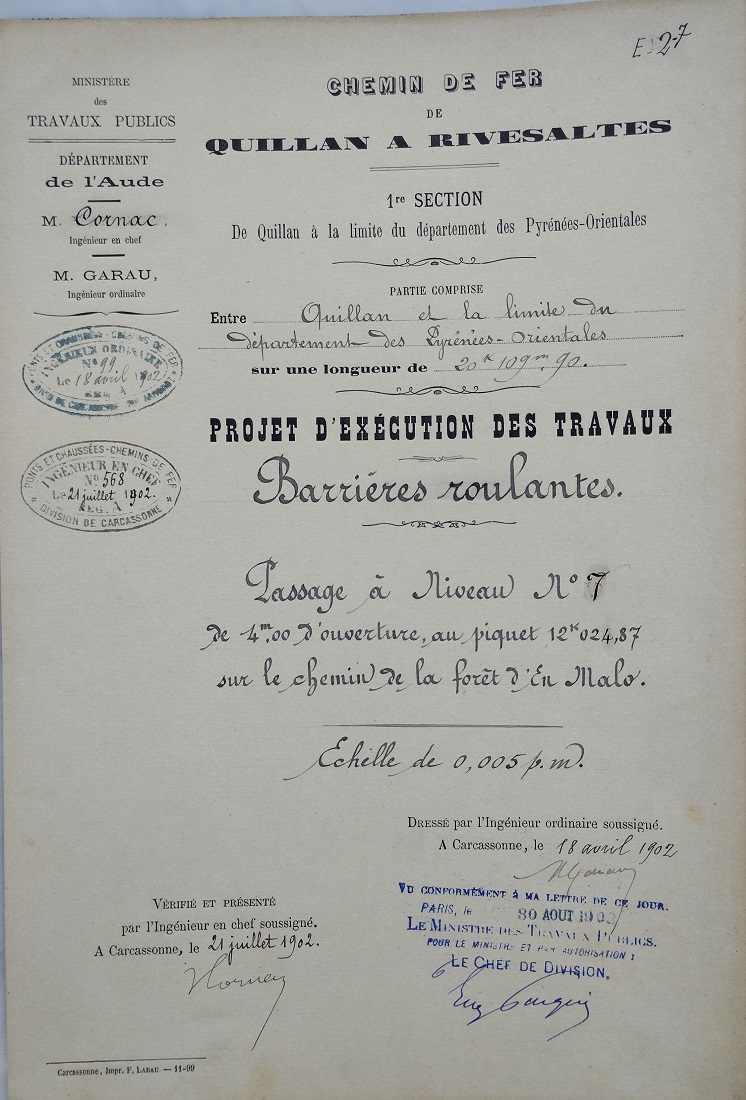 MINISTÈRE
des
TRAVAUX PUBLICS
DÉPARTEMENT
de l'Aude
M. Cornac.
Ingénieur en chef
M. GARAU,
Ingénieur ordinaire
PONTS ET CHAUSSÉES - CHEMINS DE FER
INGÉNIEUR ORDINAIRE
N° 99
Le 18 avril 1902
PONTS ET CHAUSSÉES - CHEMINS DE FER
INGÉNIEUR EN CHEF
N° 568
Le 21 juillet 1902.
REG. A
DIVISION DE CARCASSONNE
27
CHEMIN DE FER
DE
QUILLAN A RIVESALTES
1re SECTION
De Quillan à la limite du département des Pyrénées-Orientales
PARTIE COMPRISE
Entre Quillan et la limite du
département des Pyrénées-Orientales
sur une longueur de 20k 109m,90.
PROJET D'EXÉCUTION DES TRAVAUX
Barriéres roulantes.
Passage à Niveau N° 7
de 4m,00 d'ouverture, au piquet 12k024,87
sur le chemin de la forêt d'En Malo.
Echelle de 0,005 p.m.
DRESSÉ par l'Ingénieur ordinaire soussigné.
A Carcassonne, le 18 avril 1902
VU CONFORMÉMENT À MA LETTRE DE CE JOUR.
PARIS, le 30 AOUT 1902
LE MINISTRE DES TRAVAUX PUBLICS.
POUR LE MINISTRE ET PAR AUTORISATION :
LE CHEF DE DIVISION,
VÉRIFIÉ ET PRÉSENTÉ
par l'Ingénieur en chef soussigné.
A Carcassonne, le 21 juillet 1902.
Carcassonne, Impr. F. LABAU. — 11-99